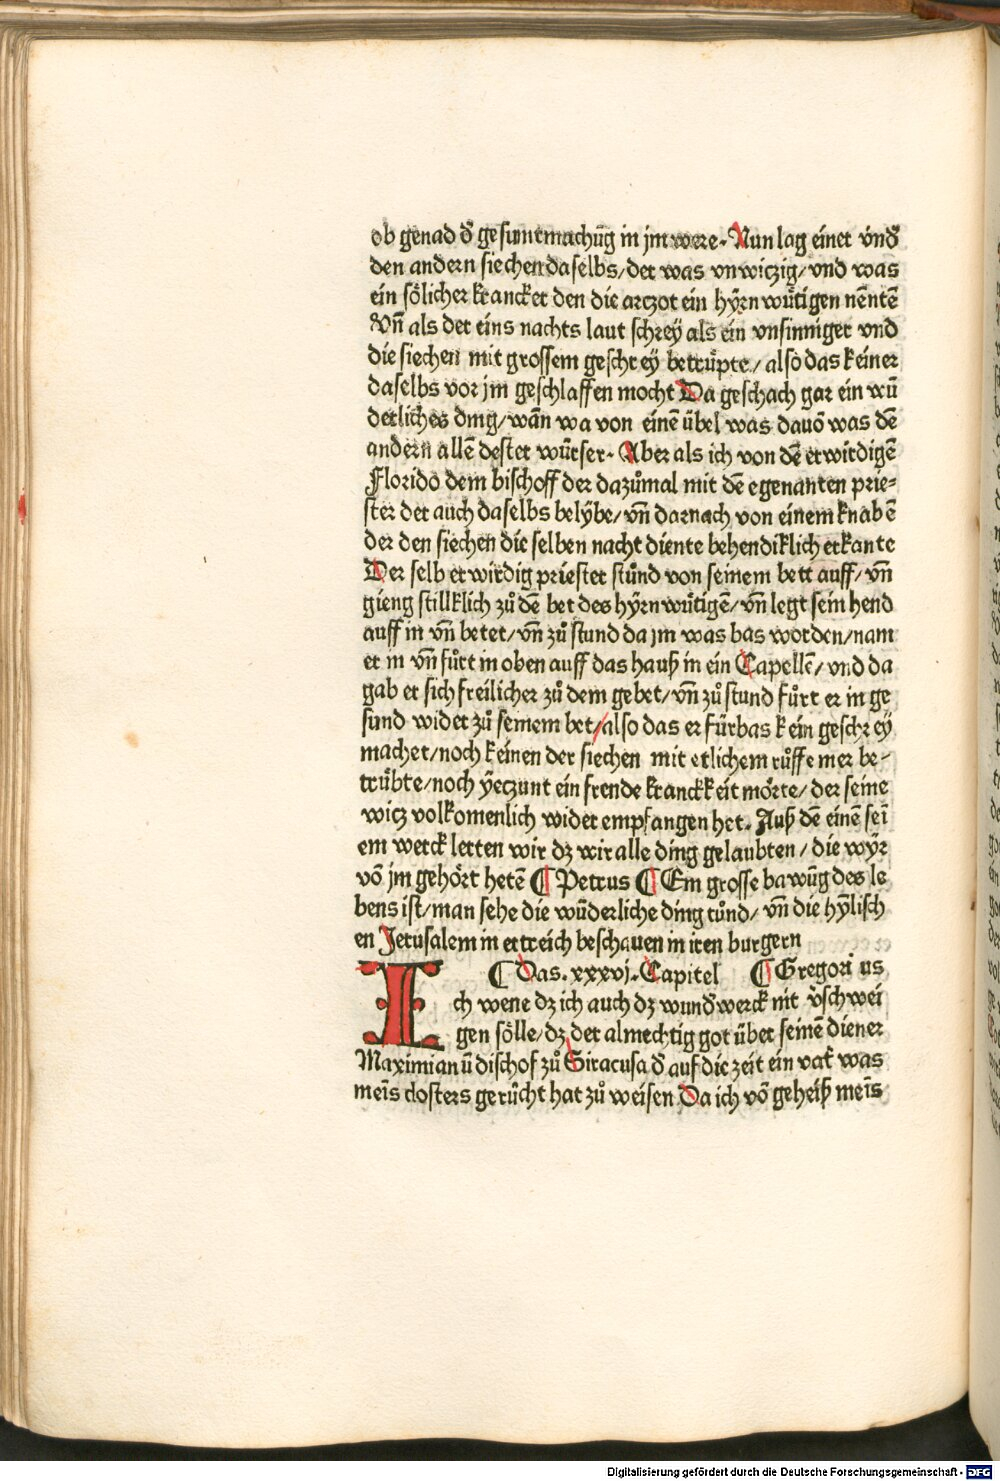 ob genad d̕ gesuntmachūg in jm were. Nun lag einer vnd̕
den andern siechen daselbs/ der was vnwiczig/ vnd was
ein sölicher krancker den die arczot ein hÿrnwütigen nēntē
Vn̄ als der eins nachts laut schreÿ als ein vnsinniger vnd
die siechen mit grossem geschreÿ betrüpte/ also das keiner
daselbs vor jm geschlaffen mocht Da geschach gar ein wū
derliches ding/ wān wa von einē übel was dauō was dē
andern allē dester würser. Aber als ich von dē erwirdigē
Florido dem bischoff der dazůmal mit dē egenanten prie⸗
ster der auch daselbs belÿbe/ vn̄ darnach von einem knabē
der den siechen die selben nacht diente behendiklich erkante
Der selb erwirdig priester stůnd von seinem bett auff/ vn̄
gieng stillklich zů dē bet des hÿrnwütigē/ vn̄ legt sein hend
auff in vn̄ betet/ vn̄ zů stund da jm was bas worden/ nam
er in vn̄ fůrt in oben auff das hauß in ein Capellē/ vnd da
gab er sich freilicher zů dem gebet/ vn̄ zů stund fůrt er in ge
sund wider zů seinem bet/ also das er fürbas kein geschreÿ
machet/ noch keinen der siechen mit etlichem růffe mer be⸗
trübte/ noch ÿeczunt ein frende kranckkeit mörte/ der seine
wicz volkomenlich wider empfangen het. Auß dē einē sei
em werck lerten wir dz wir alle ding gelaubten/ die wÿr
vō jm gehört hetē ¶ Petrus ¶ Ein grosse bawūg des le
bens ist/ man sehe die wūderliche ding tůnd/ vn̄ die hÿlisch
en Jerusalem in ertreich beschauen in iren burgern
¶ Das .xxxvj. Capitel ¶ Gregorius
Ich wene dz ich auch dz wund̕werck nit v̕schwei
gen sölle/ dz der almechtig got über seinē diener
Maximianū bischof zů Siracusa d̕ auf die zeit ein vat̕ was
meīs closters gerücht hat zů weisen Da ich vō geheiß meīs
Digitalisierung gefördert durch die Deutsche Forschungsgemeinschaft - DFG